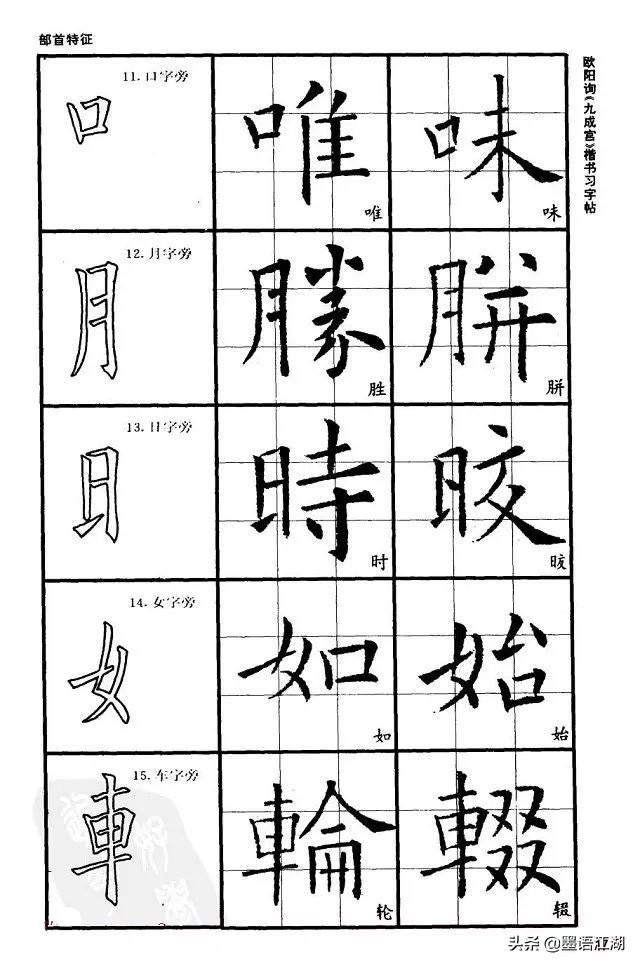 部首特征
欧阳询《九成宫》楷书习字帖
口
11. 口字旁
唯
唯
味
味
月
12. 月字旁
勝
胜
胼
胼
日
13. 日字旁
時
时
女
14. 女字旁
如
如
始
始
車
15. 车字旁
輪
轮
輟
辍
头条 @墨语江湖